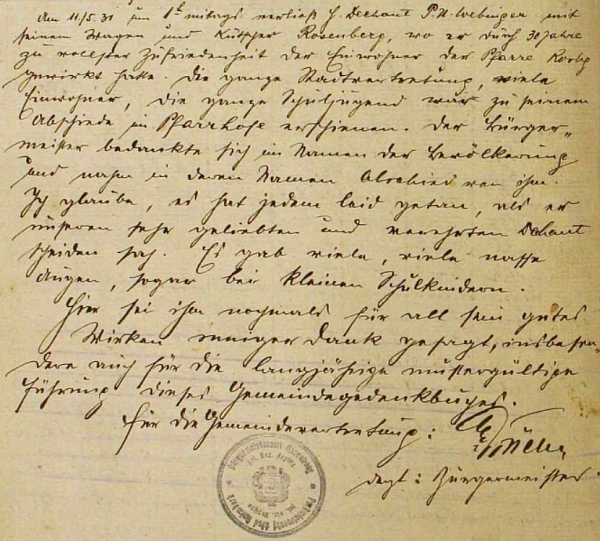 Am 11/5.31 um 1h mitags verließ H Dechant P. N. Webinger mit
seinem Wagen und Kutscher Rosenberg, wo er durch 30 Jahre
zu vollster Zufriedenheit der Einwohner der Pfarre
gewirkt hatte. Die ganze Stadtvertretung, viele
Einwohner, die ganze Schuljugend war zu seinem
Abschiede im Pfarrhofe erschienen. Der Bürger-
meister bedankte sich im Namen der Bevölkerung
und nahm in deren Namen Abschied von ihm.
Ich glaube, es hat jedem leid getan, als er
unseren sehr geliebten und verehrten Dechant
scheiden sah. Es gab viele, viele nasse
Augen, sogar bei kleinen Schulkindern.
Hier sei ihm nochmals für all sein gutes
Wirken inniger Dank gesagt, insbeson-
dere auch für die langjährige mustergültige
Führung dieses Gemeindegedenkbuches.
Für die Gemeindevertretung:
dzgt: Bürgermeister